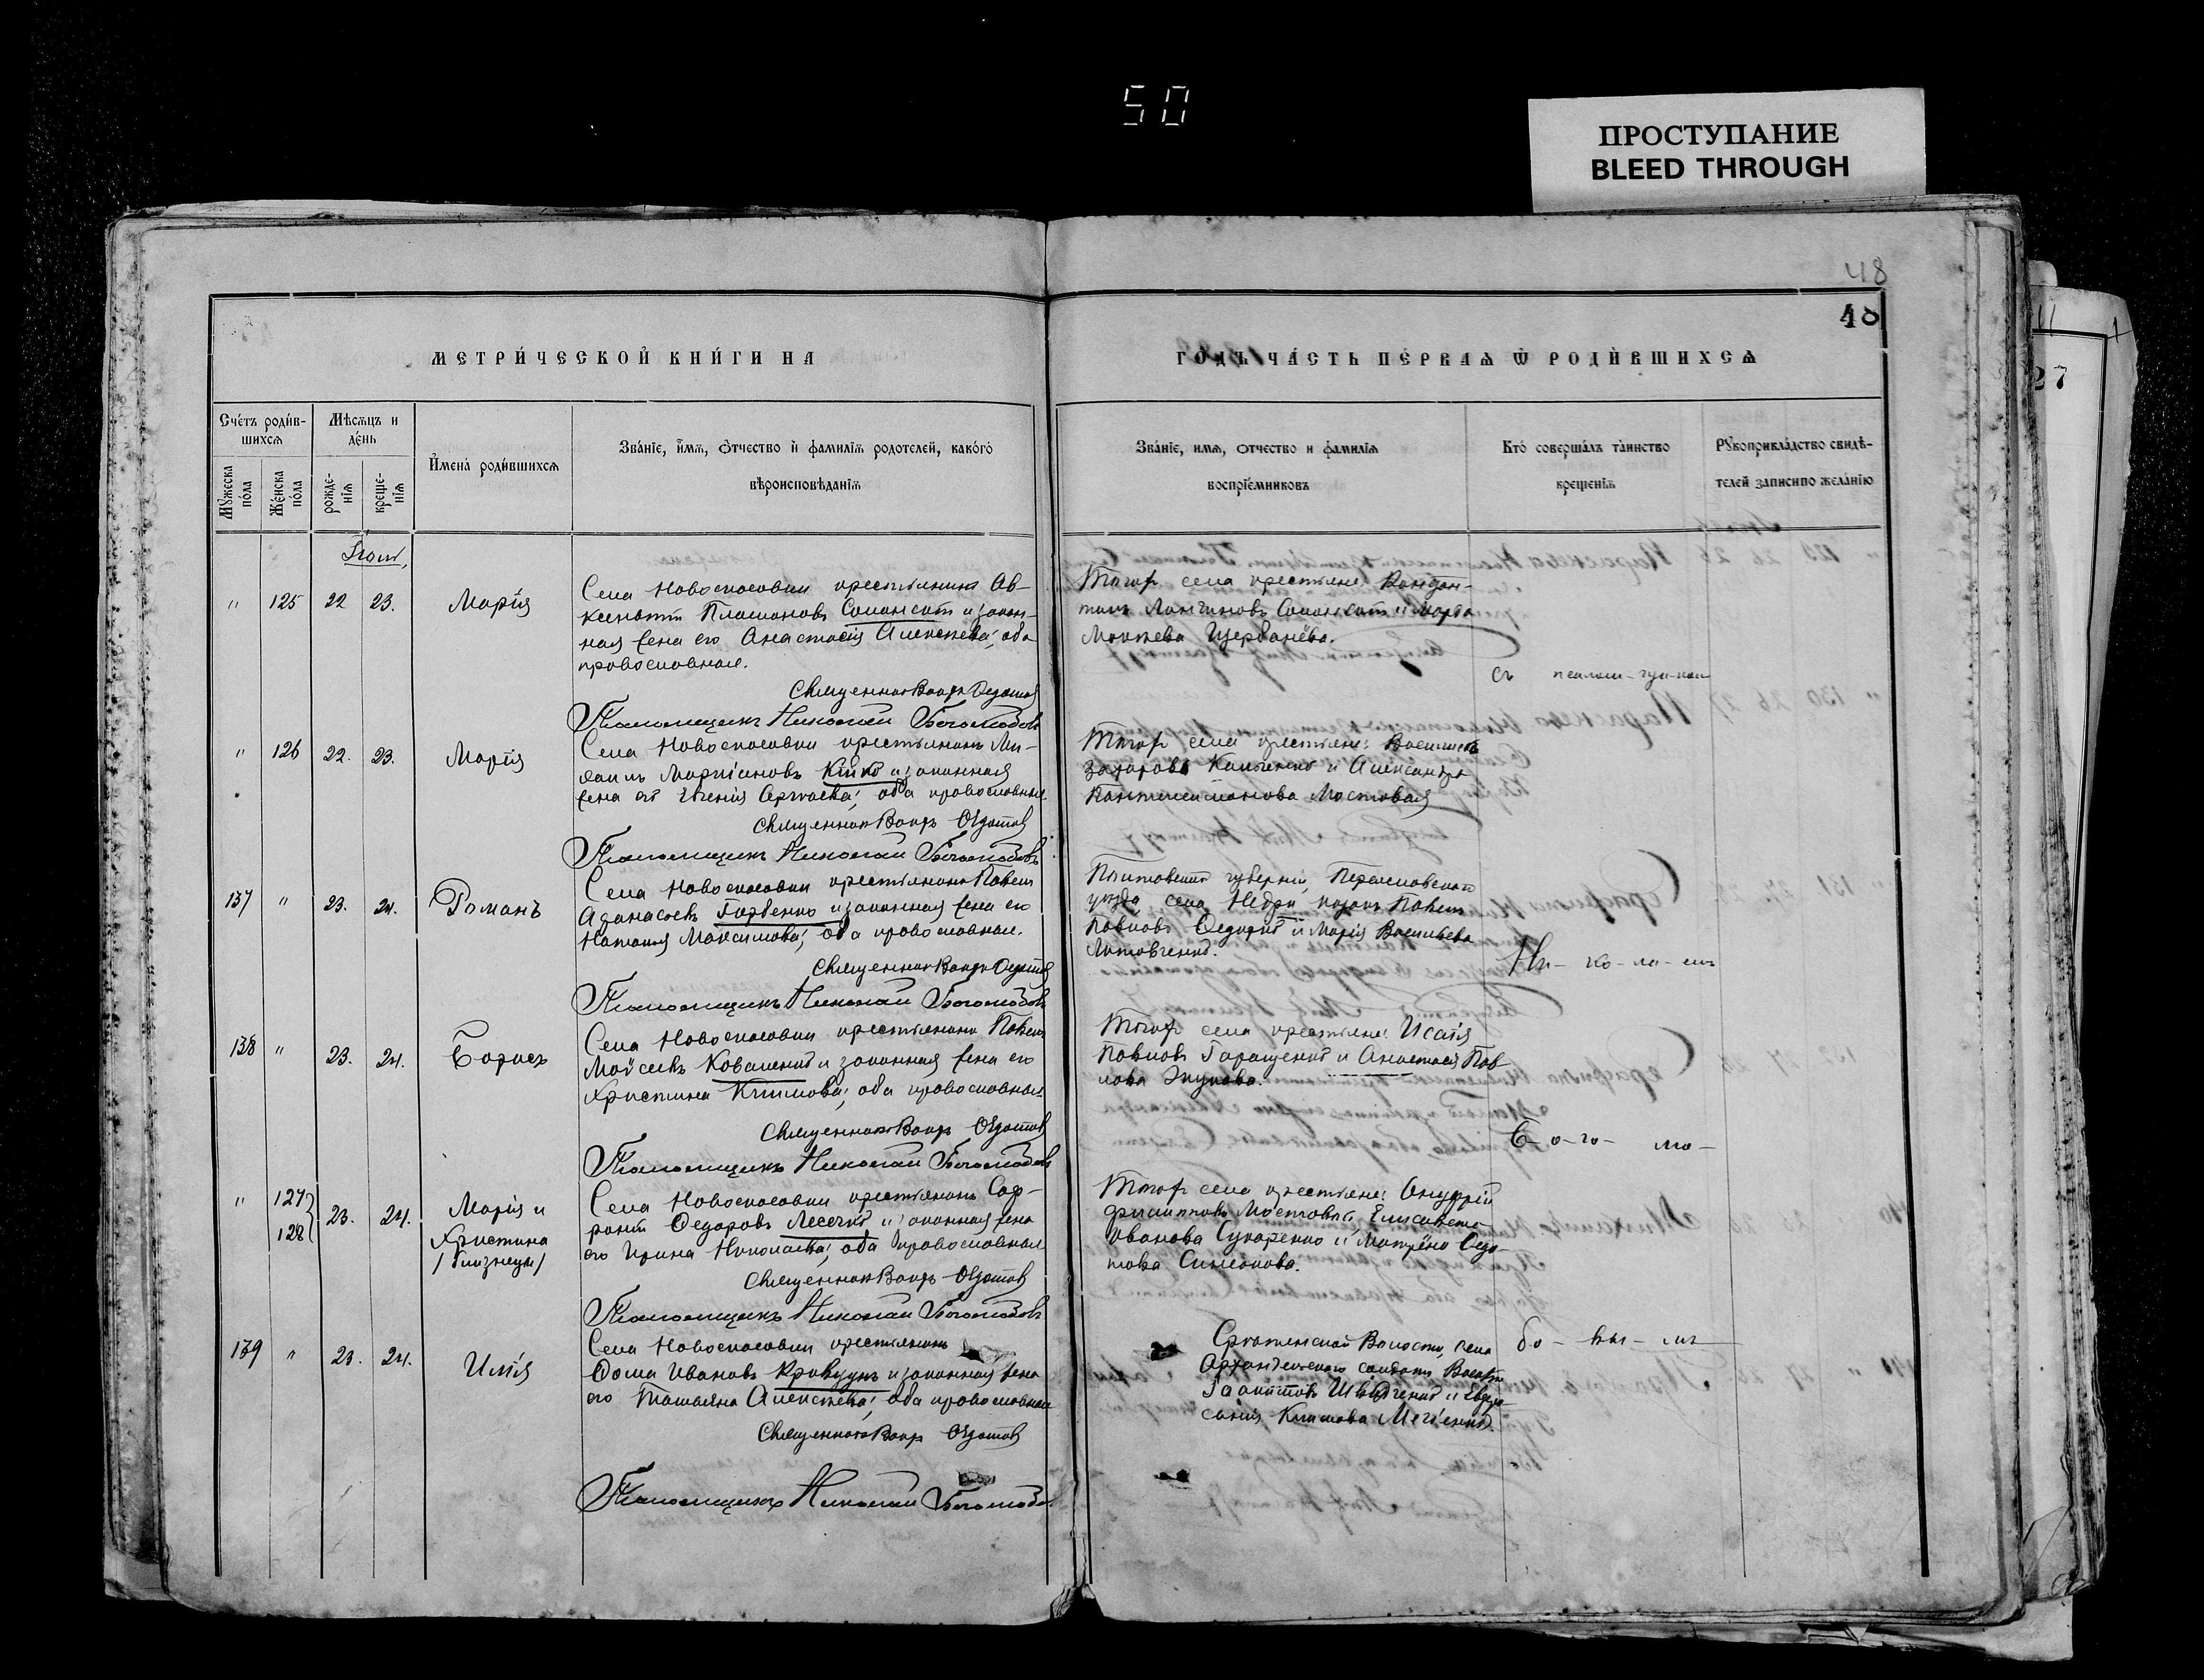 50
ПРОСТУПАНИЕ
BLEED THROUGH
48
48
27
МЕТРИ́ЧЕСКОЙ КНИ́ГИ НА
ГО́ДЪ ЧА́СТЬ ПЕ́РВАѦ Ѿ РОДИ́ВШИХСѦ
Сче́тъ роди́в-
шихсѧ
Мѣ́сѧцъ и
де́нь
Мꙋ́жеска
по́ла
Же́нска
по́ла
рожде-
нїѧ
креще-
нїѧ
И҆мена̀ роди́вшихсѧ
Зва́нїе, и҆́мѧ, ѻ҆́тчество и҆ фамилїѧ родотелей, како́го
вѣроисповѣ́данїѧ
Зва́нїе, имѧ, ѻтчество и фамилїѧ
воспрїе́мниковъ
Кто̀ соверша́лъ та́инство
креще́нїѧ
Рꙋкоприкла́дство свидѣ-
телей записипо жела́нїю
" 125 22 23. Марія
Села Новоспасовки крестьянинъ Ав-
ксентій Платоновъ и закон-
ная жена его Анастасія Алексѣева; оба
православные.
Священникъ Ѳедотов
Псаломщикъ Николай Боголюбовъ
Тогоже села крестьяне:
Логгиновъ и Марфа
Мокіева Щербанёва.
съ псалом-щи-ком
" 126 22. 23. Марія
Села Новоспасовки крестьянинъ Ми-
хаилъ Маркіановъ Кійко и законная
жена его Евгенія Сергѣева; оба православные
Священникъ Ѳедотов
Псаломщикъ Николай Боголюбовъ
Тогоже села крестьяне: Василій
Захаровъ и Александра
Пантелеимонова Мостовая
137 " 23. 24. Романъ
Села Новоспасовки крестьянинъ Павелъ
Аѳанасіевъ Горбенко и законная жена его
Наталія Максимова; оба православные.
Священникъ Ѳедотов
Псаломщикъ Николай Боголюбовъ
Полтавской губерніи, Переяславскаго
уѣзда, села Недри казакъ Павелъ
Павловъ и Марія Васильева
Литовченко.
Ни- ко- ла- емъ
138 " 23. 24. Борисъ
Села Новоспасовки крестьянинъ Павелъ
Моѵсеевъ Коваленко и законная жена его
Христина Климова; оба православные
Священникъ Ѳедотов
Псаломщикъ Николай Боголюбовъ
Тогоже села крестьяне: Исаія
Павловъ Геращенко и Анастасія Пав-
лова
Б-о-го- лю-
" 127 128 23. 24. Марія и
Христина
/близнецы/
Села Новоспасовки крестьянинъ Соф-
роній Ѳедоровъ Лесечко и законная жена
его Ирина Николаева; оба православные
Священникъ Ѳедотов
Псаломщикъ Николай Боголюбовъ
Тогоже села крестьяне: Онуфрій
Филипповъ Мостовый, Елисавета
Иванова Сухаренко и Матрёна Ѳедо-
това Симонова.
139 " 23. 24. Илія
Села Новоспасовки крестьянинъ
Ѳома Ивановъ Кривуцъ и законная жена
его Татьяна Алексѣева; оба православные
Священникъ Ѳедотов
Псаломщикъ Николай Боголюбо
волости, села
Архангельскаго солдатъ
Галактіоновъ Швидченко и Евфро-
синія Климова
бо- вы- мъ